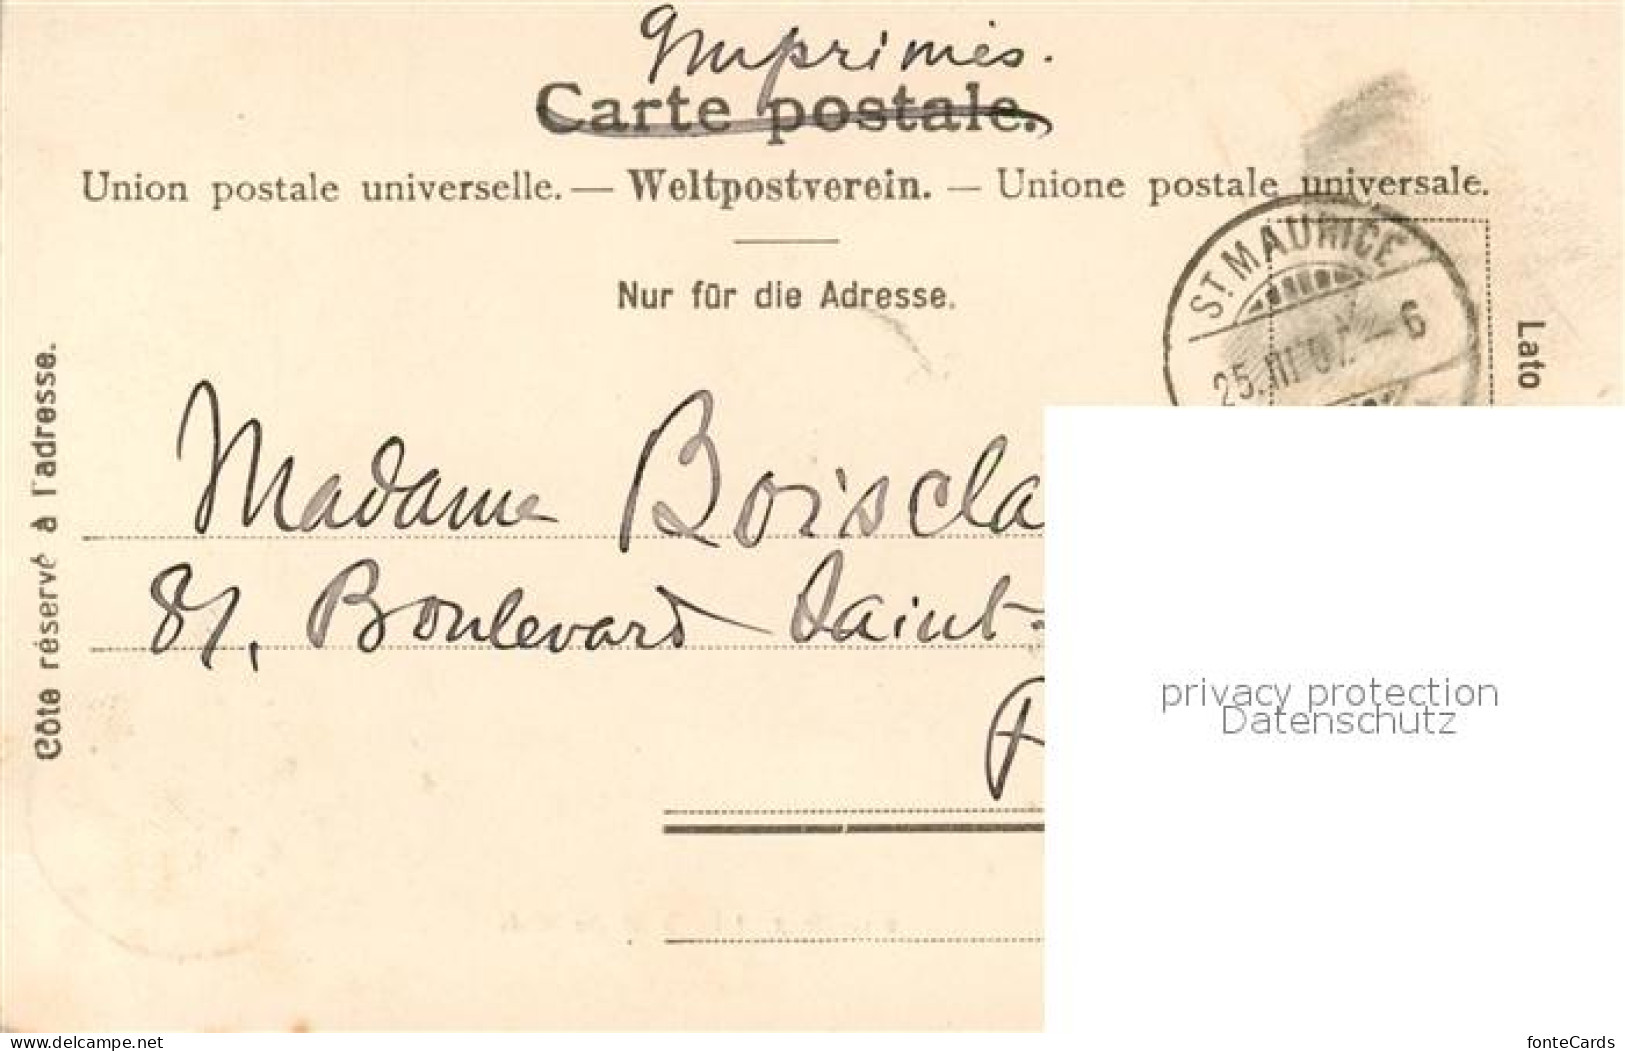 Imprimés.
Carte postale.
Union postale universelle. — Weltpostverein. — Unione postale universale.
Nur für die Adresse.
ST. MAURICE
25. III 02 – 6
Lato
Côte réservé à l'adresse.
Madame Boiscla
81, Boulevard Saint-
privacy protection
Datenschutz
www.delcampe.net
fonteCards